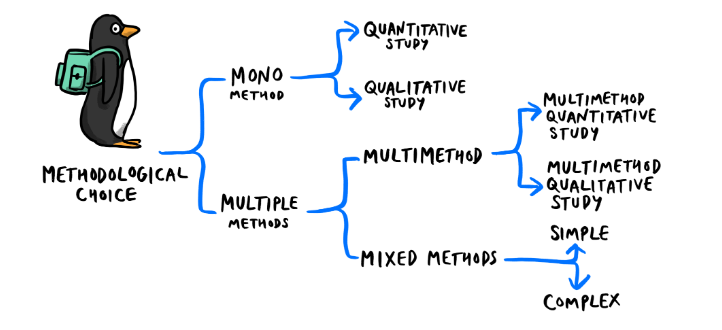 METHODOLOGICAL
CHOICE
MONO
METHOD
QUANTITATIVE
STUDY
QUALITATIVE
STUDY
MULTIPLE
METHODS
MULTIMETHOD
MULTIMETHOD
QUANTITATIVE
STUDY
MULTIMETHOD
QUALITATIVE
STUDY
MIXED METHODS
SIMPLE
COMPLEX